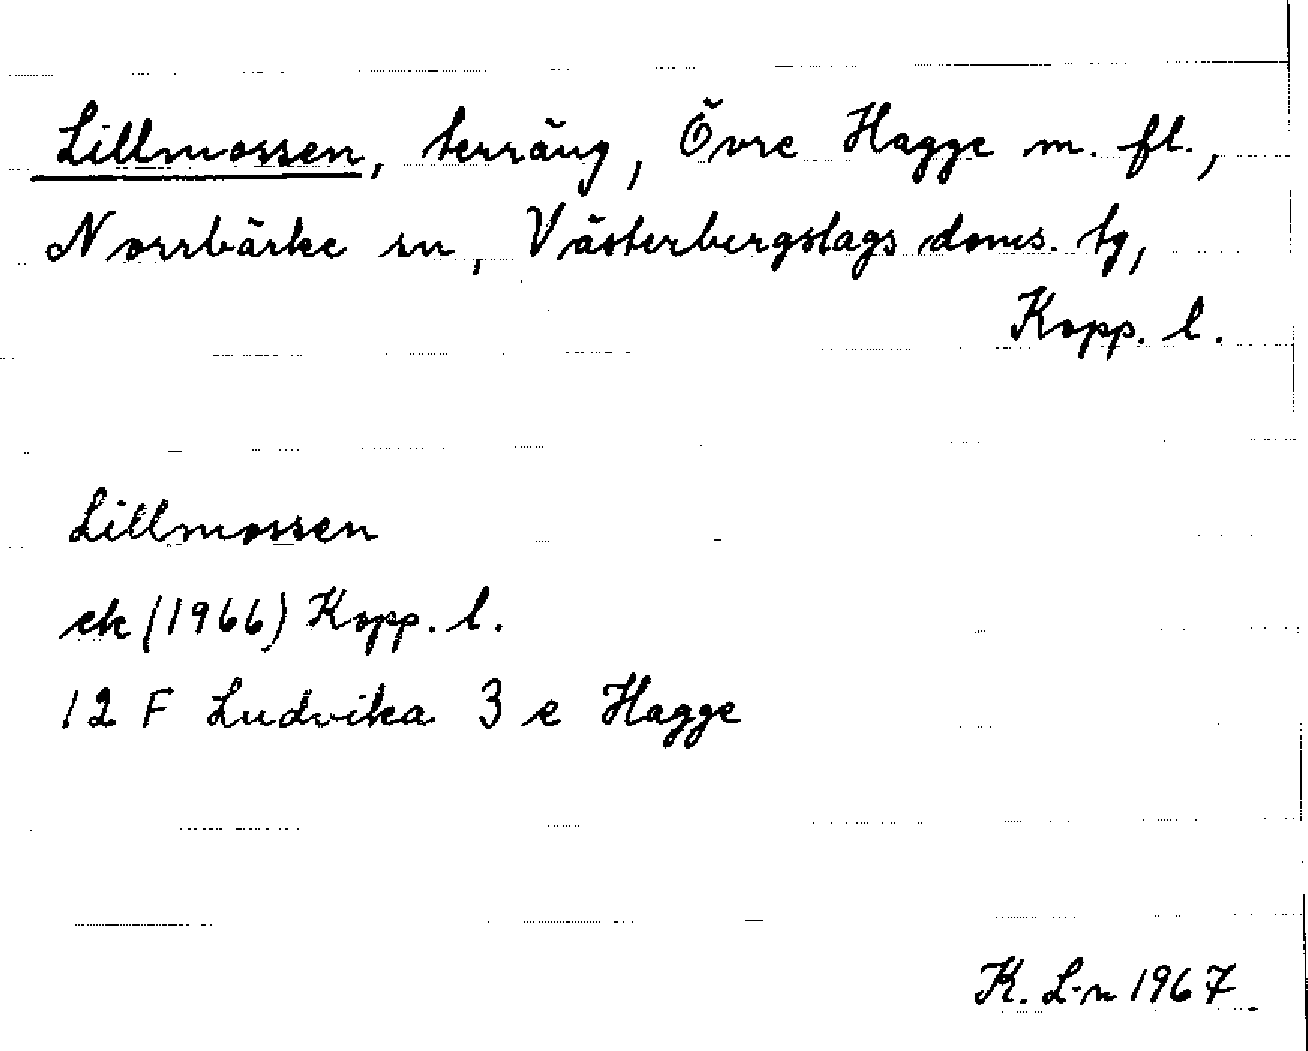 Lillmossen, terräng, Övre Hagge m. fl.,
Norrbärke sn, Västerbergslags doms. tg,
Kopp. l.
Lillmossen
ek (1966) Kopp. l.
12 F Ludvika 3 e Hagge
K. L-n 1967